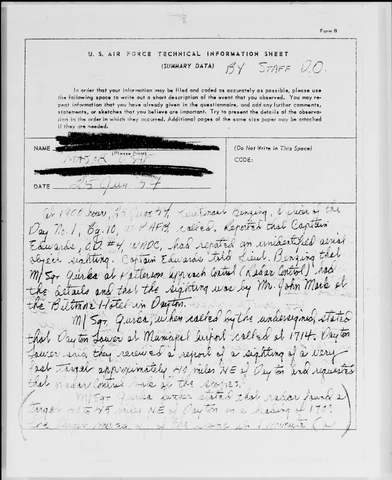 Form B
U. S. AIR FORCE TECHNICAL INFORMATION SHEET
(SUMMARY DATA) BY STAFF D.O.
In order that your information may be filed and coded as accurately as possible, please use
the following space to write out a short description of the event that you observed. You may re-
peat information that you have already given in the questionnaire, and add any further comments,
statements, or sketches that you believe are important. Try to present the details of the observa-
tion in the order in which they occurred. Additional pages of the same size paper may be attached
if they are needed.
NAME
(Please Print)
(Do Not Write in This Space)
CODE:
DATE 25 Jun 57
At 1900 hour, 25 Jun 57, Lieutenant Benzing, of the
Day No. 1, Bg. 10, WPAFB called. Reported that Captain
Edwards, OD #4, had reported an unidentified aerial
object sighting. Captain Edwards told Lieut. Benzing that
M/Sgt. at Patterson approach Control (Radar Control) had
the details and that the sighting was by Mr. John Mark at
the Biltmore Hotel in Dayton.
M/Sgt. when called by the undersigned, stated
that Dayton Tower at Municipal Airport called at 1714. Dayton
Tower said they received a report of a sighting of a very
fast target approximately 40 miles NE of Dayton and requested
that Radar Control look at the scopes.
M/Sgt. further stated that radar found a
target 40 to 45 miles NE of Dayton on a bearing of